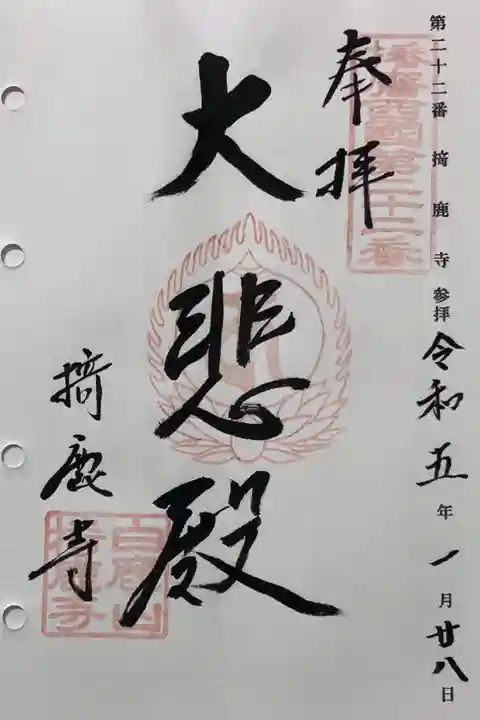 第二十二番 掎鹿寺 参拝 令和五年一月廿八日
奉拝
播磨西國第二十二番
大悲殿
掎鹿寺
白鹿山
掎鹿寺